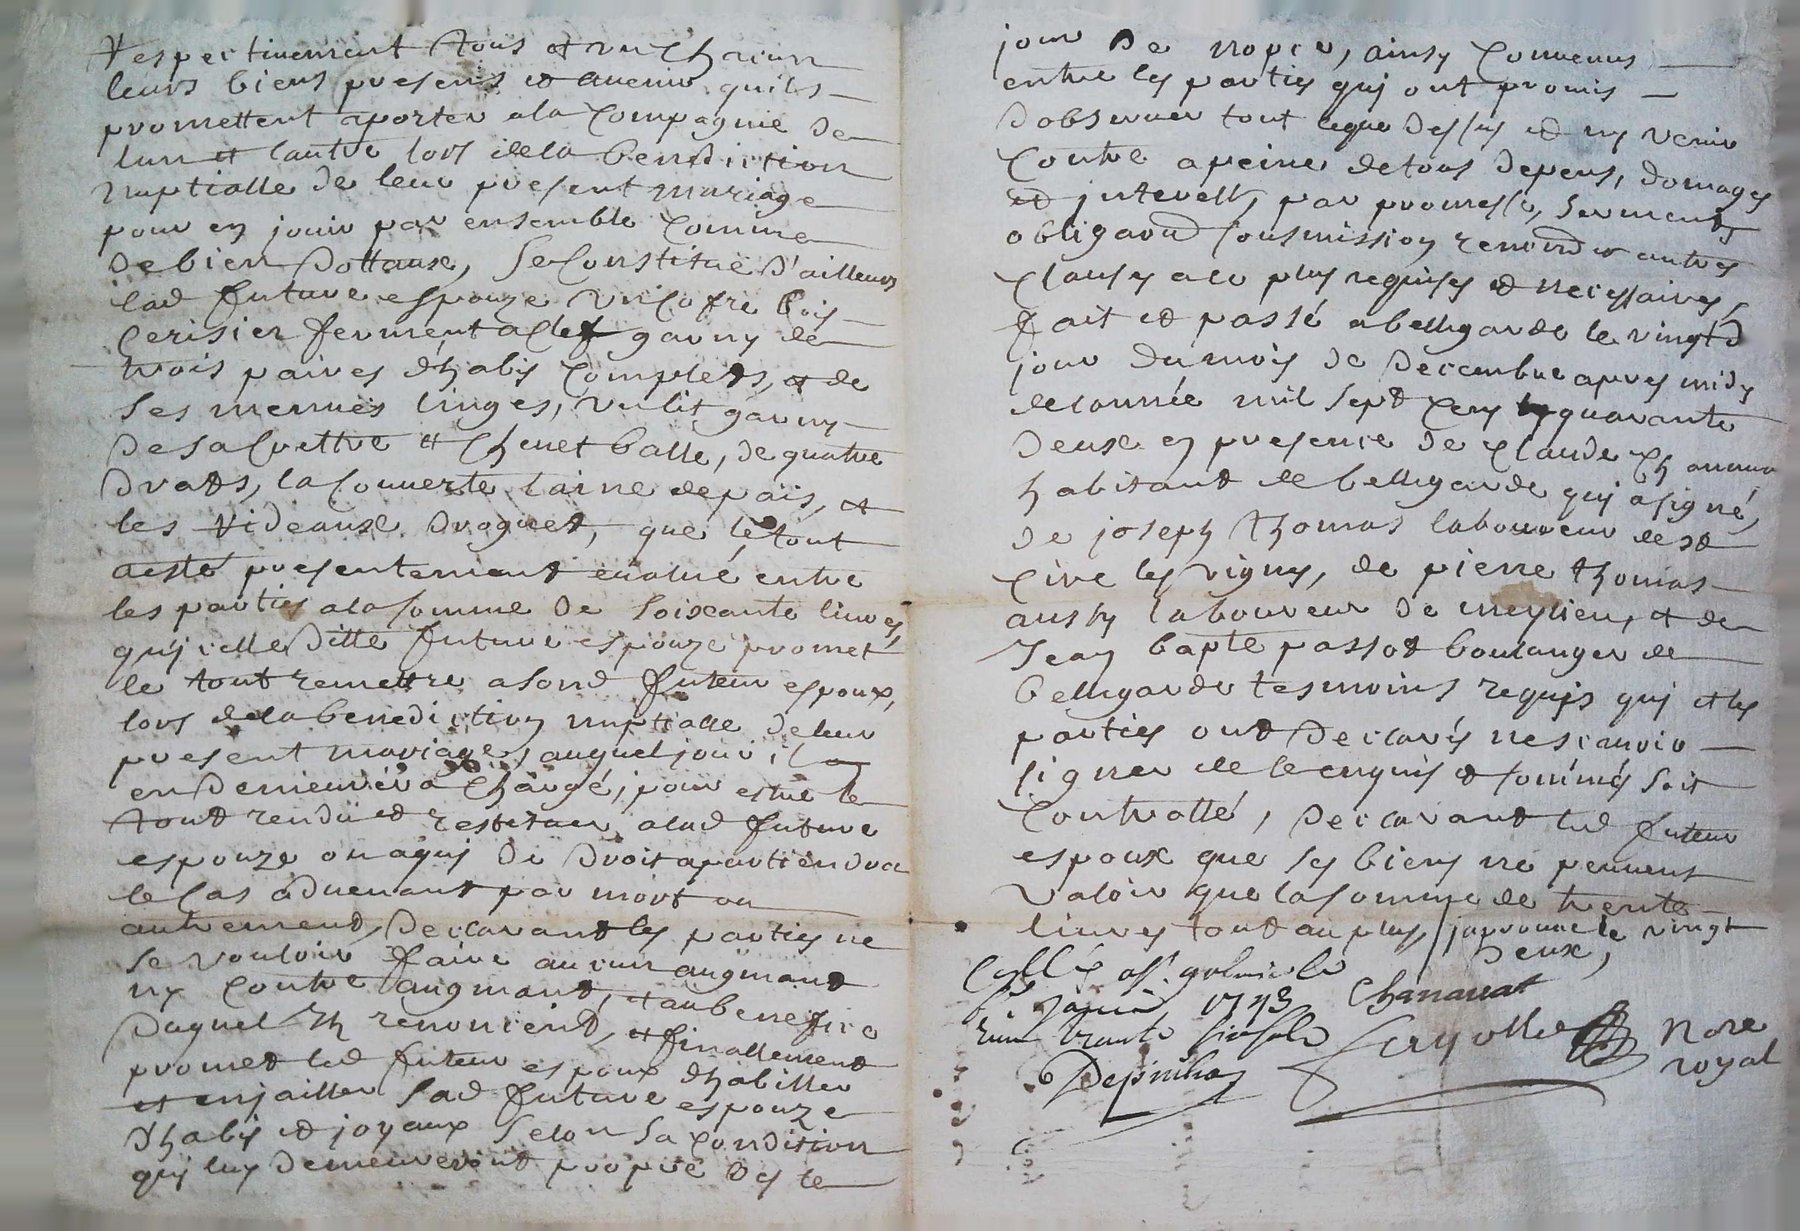 respectivement tous et un chacun
leurs biens presens et avenir quils
promettent aporter a la compagnie de
lun et lautre lors de la benediction
nuptialle de leur present mariage
pour en jouir par ensemble comme
de bien dottaux, se constitue d'ailleurs
lad future espouze un cofre bois
cerisier ferment a clef garny de
trois paires d'habis complets, et de
ses menues linges, un lit garny
de sa cuettre et chevet balle, de quatre
drads, la couverte laine de païs, et
les rideaux droguet, que le tout
a esté presentement evalué entre
les parties a la somme de soixante livres,
qu'icelle ditte future espouze promet
le tout remettre a sond futeur espoux,
lors de la benediction nuptialle de leur
present mariage, auquel jour il
en demeurera chargé, pour estre le
tout rendü et restituer a lad future
espouze ou a qui de droit apartiendra
le cas advenant par mort ou
autrement, declarant les parties ne
se vouloir faire aucun augmant
ny contre augmant, et au benefice
duquel ils renoncent, et finallement
promet led futeur espoux d'habiller
et enjailler lad future espouze
d'habis et joyaux selon sa condition
quy luy demeureront propre des le
jour de nopce, ainsy convenus
entre les parties qui ont promis
dobserver tout ce que dessus et ny venir
contre a peine de tous depens, domages
et interests, par promesse, serment
obligaond sousmission renond et autres
clauses a ce plus requises et necessaires,
fait et passé a bellegarde le vingtd
jour du mois de decembre apres midy
de lannée mil sept cens quarante
deux en presence de claude chanavat
habitant de bellegarde qui a signé,
de joseph thomas laboureur de st
cire les vignes, de pierre thomas
aussy laboureur de meylieu, et de
Jean bapte passot boulanger de
bellegarde tesmoins requis qui et les
parties ont declarés ne scavoir
signer de ce enquis et sommés soit
controllé, declarant led futeur
espoux que ses biens ne peuvent
valoir que la somme de trente
livres tout au plus, japrouve le vingt
deux,
1743 Chanavat
Nore
royal